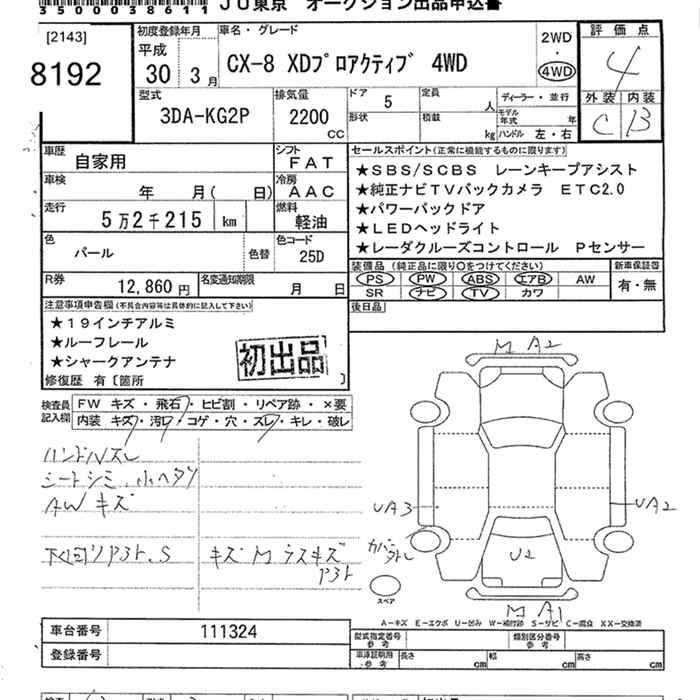 3500038611 JU東京 オークション出品申込書
[2143]
8192
初度登録年月 車名・グレード
平成
30 3月 CX-8 XDプロアクティブ 4WD
2WD
・
4WD
評価点
4
外装 内装
C B
型式 排気量 ドア 5 定員 人 ディーラー・並行
3DA-KG2P 2200 CC 形状 積載 kg モデル年式 年
ハンドル 左・右
車歴 自家用 シフト FAT
車検 年 月( 日) 冷房 AAC
走行 5万2千215 km 燃料 軽油
色 パール 色替 色コード 25D
R券 12,860円 名変通知期限 月 日
セールスポイント(正常に機能するものに限ります)
★SBS/SCBS レーンキープアシスト
★純正ナビTVバックカメラ ETC2.0
★パワーバックドア
★LEDヘッドライト
★レーダクルーズコントロール Pセンサー
装備品(純正品に限り○をつけてください) 新車保証書
PS PW ABS エアB AW 有・無
SR ナビ TV カワ
後日品
注意事項申告欄(不具合内容等は具体的に記入して下さい)
★19インチアルミ
★ルーフレール
★シャークアンテナ
初出品
修復歴 有〔箇所 〕
検査員記入欄
FW キズ・飛石・ヒビ割・リペア跡・×要
内装 キズ・汚れ・コゲ・穴・スレ・キレ・破レ
ハンドルスレ
シートシミ、小ヘタリ
AWキズ
下回りサヨト.S キズMラスキズ
サヨト
M A2
UA3
UA2
カバー外し
U2
スペア
M A1
A-キズ E-エクボ U-凹み W-補修跡 S-サビ C-腐食 XX-交換済
車台番号 111324
登録番号
型式指定番号 参考 類別区分番号 参考
車庫証明用 参考 長さ cm 幅 cm 高さ cm